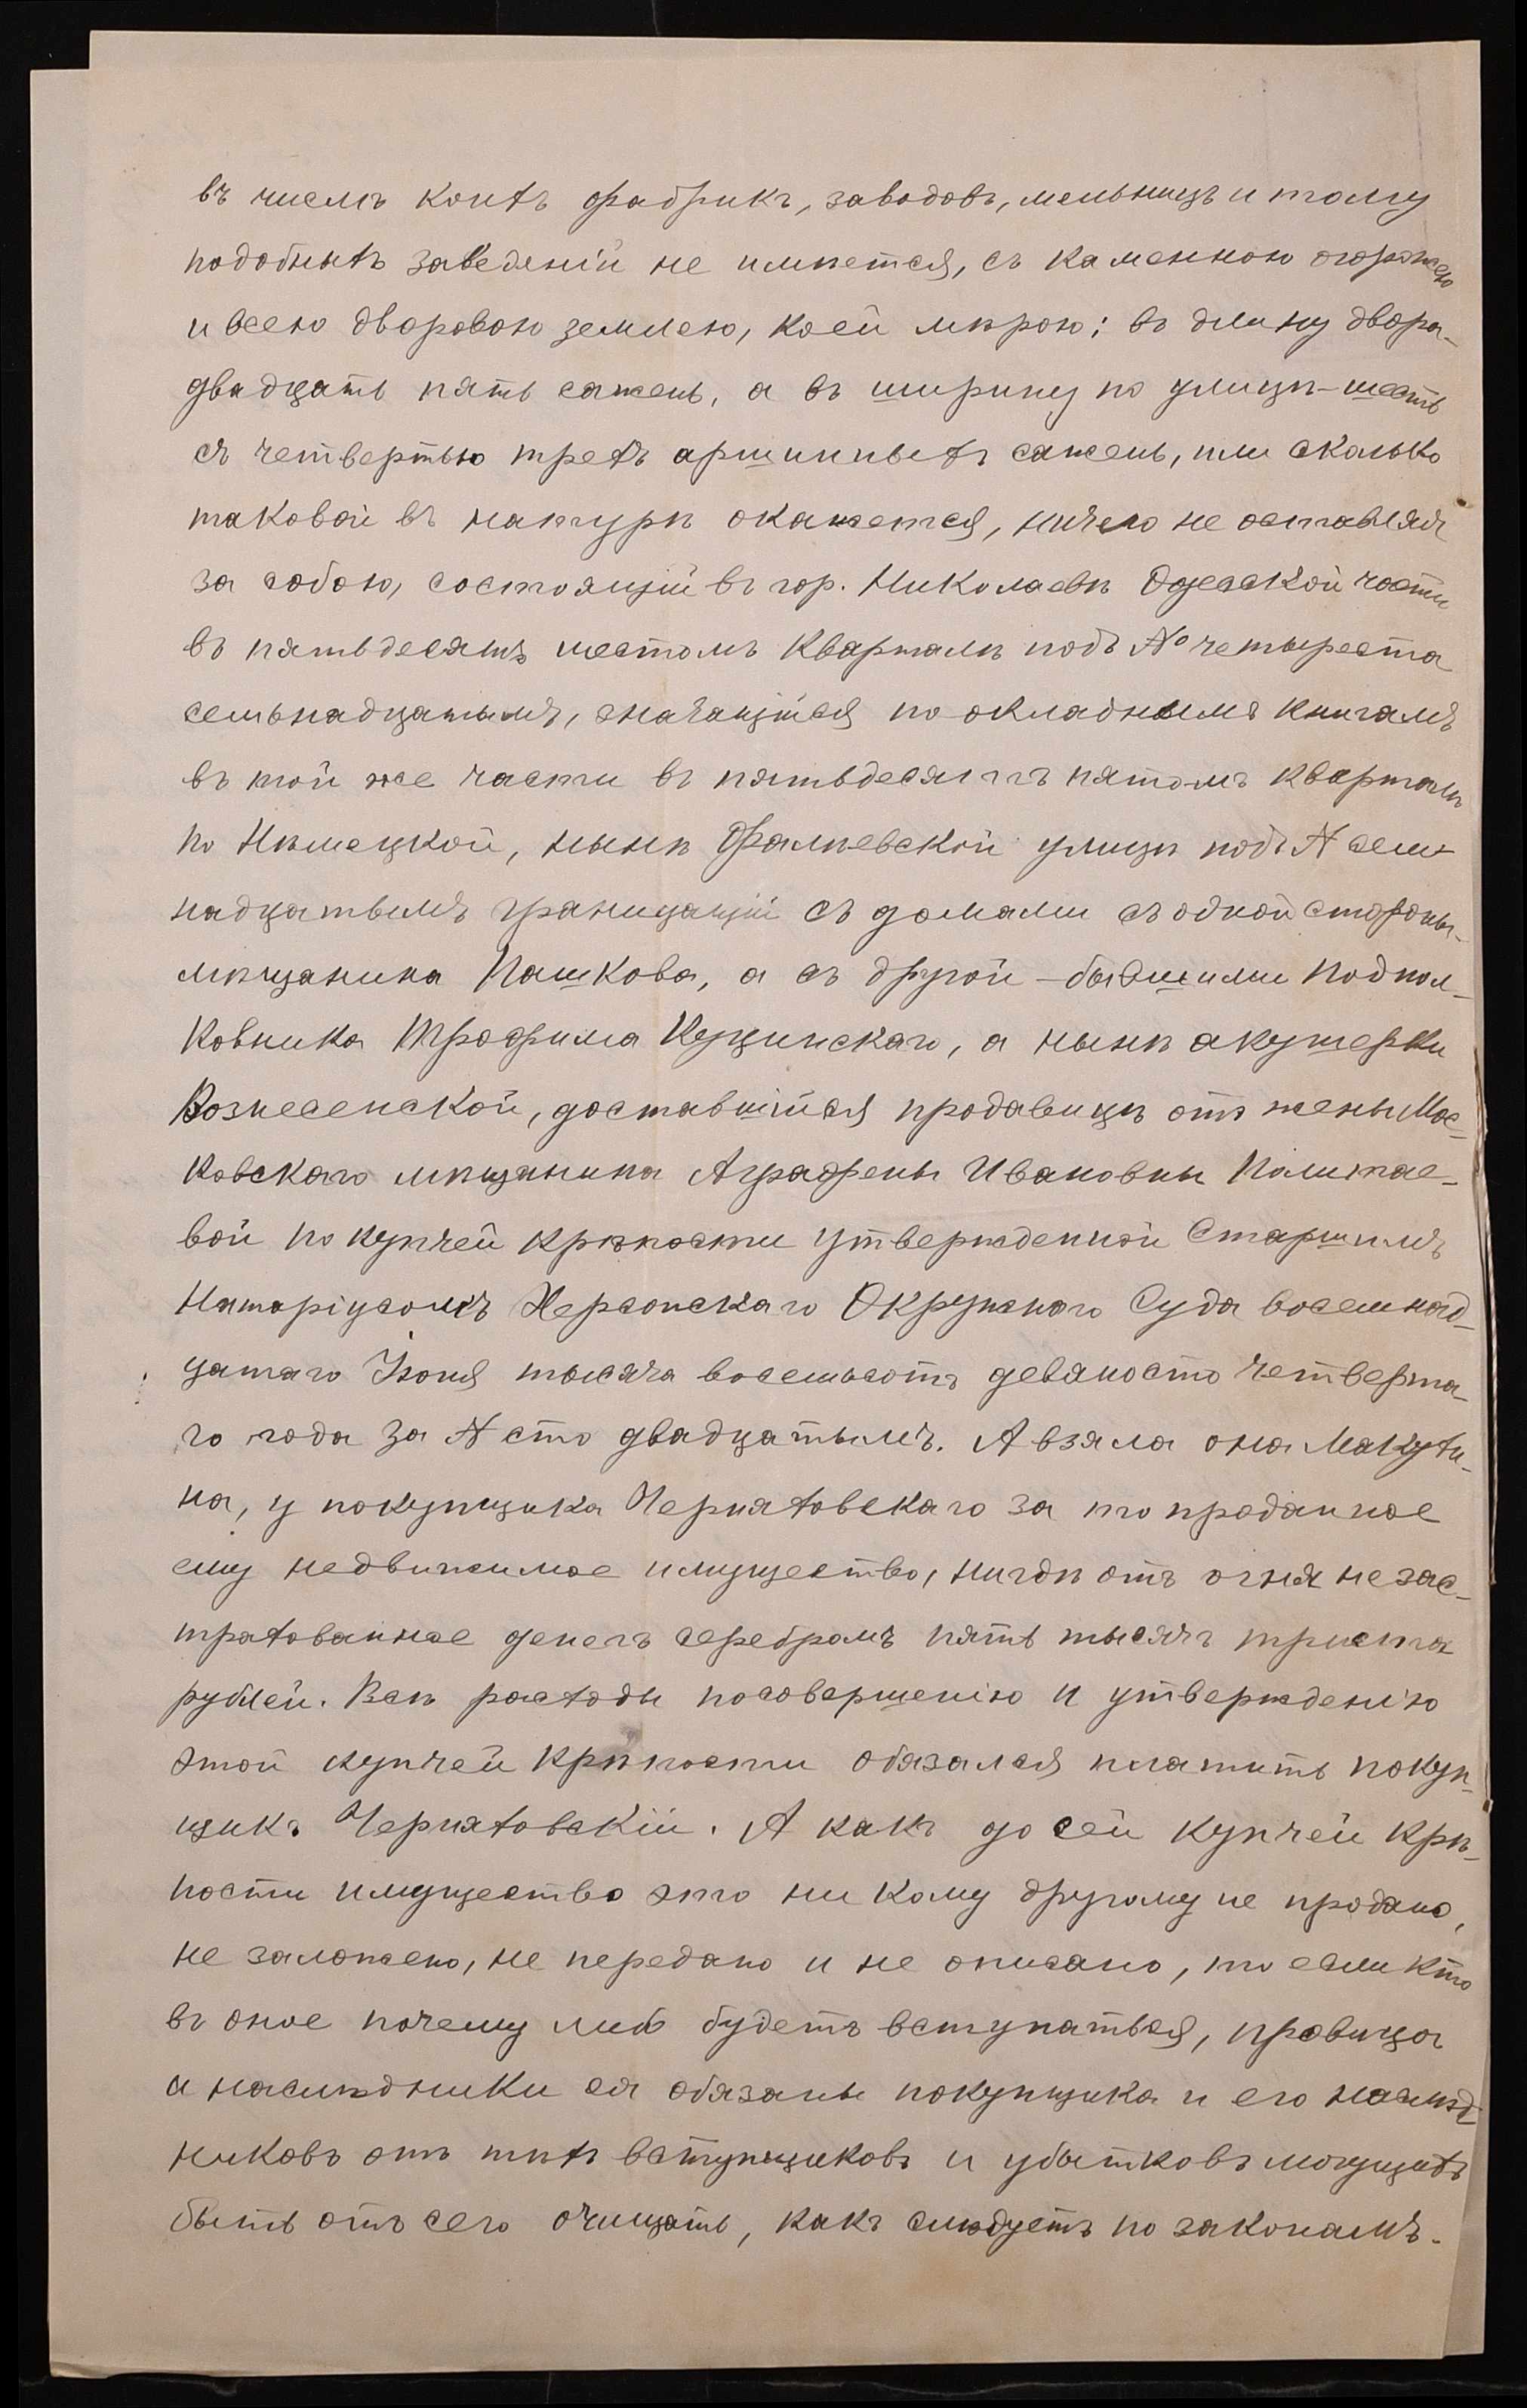 въ числѣ коихъ фабрикъ, заводовъ, мельницъ и тому
подобныхъ заведеній не имѣется, съ каменною огорожею
и всею дворовою землею, коей мѣрою: въ длину двора-
двадцать пять сажень, а въ ширину по улицѣ-шесть
съ четвертью трехъ аршинныхъ сажень, или сколько
таковой въ натурѣ окажется, ничего не оставляя
за собою, состоящій въ гор. Николаевѣ Одесской части
въ пятьдесятъ шестомъ кварталѣ подъ № четыреста
семьнадцатымъ, значащійся по окладнымъ книгамъ
въ той же части въ пятьдесятъ пятомъ кварталѣ
по Нѣмецкой, нынѣ Фалѣевской улицѣ подъ N сем-
надцатымъ граничащій съ домами съ одной стороны-
мѣщанина Пашкова, а съ другой - бывшими Подпол-
ковника Трофима Куцинскаго, а нынѣ акушерки
Вознесенской, доставшійся продавицѣ отъ жены Мос-
ковскаго мѣщанина Аграфены Ивановны Полетае-
вой по купчей крѣпости утвержденной Старшимъ
Нотаріусомъ Херсонскаго Окружнаго Суда восемнад-
цатаго Іюня тысяча восемьсотъ девяносто четверта-
го года за N сто двадцатымъ. А взяла она Макухи-
на, у покупщика Черняховскаго за то проданное
ему недвижимое имущество, нигдѣ отъ огня не зас-
трахованное денегъ серебромъ пять тысячъ триста
рублей. Всѣ расходы по совершенію и утвержденію
этой купчей крѣпости обязался платить покуп-
щикъ Черняховскій. А какъ до сей купчей крѣ-
пости имущество это ни кому другому не продано,
не заложено, не передано и не описано, то если кто
въ оное почему либо будетъ вступаться, провица
и наслѣдники ея обязаны покупщика и его наслѣд-
никовъ отъ тѣхъ вступщиковъ и убытковъ могущихъ
быть отъ сего очищать, какъ слѣдуетъ по законамъ.